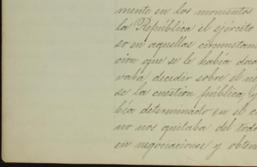 mento en los momentos
la República el ejército
so en aquellas circunstan
cion que se le habia
vaba, decidir sobre el
se la cuestion pública, y
bia determinado en el
no nos quitaba del todo
en negociaciones y obten